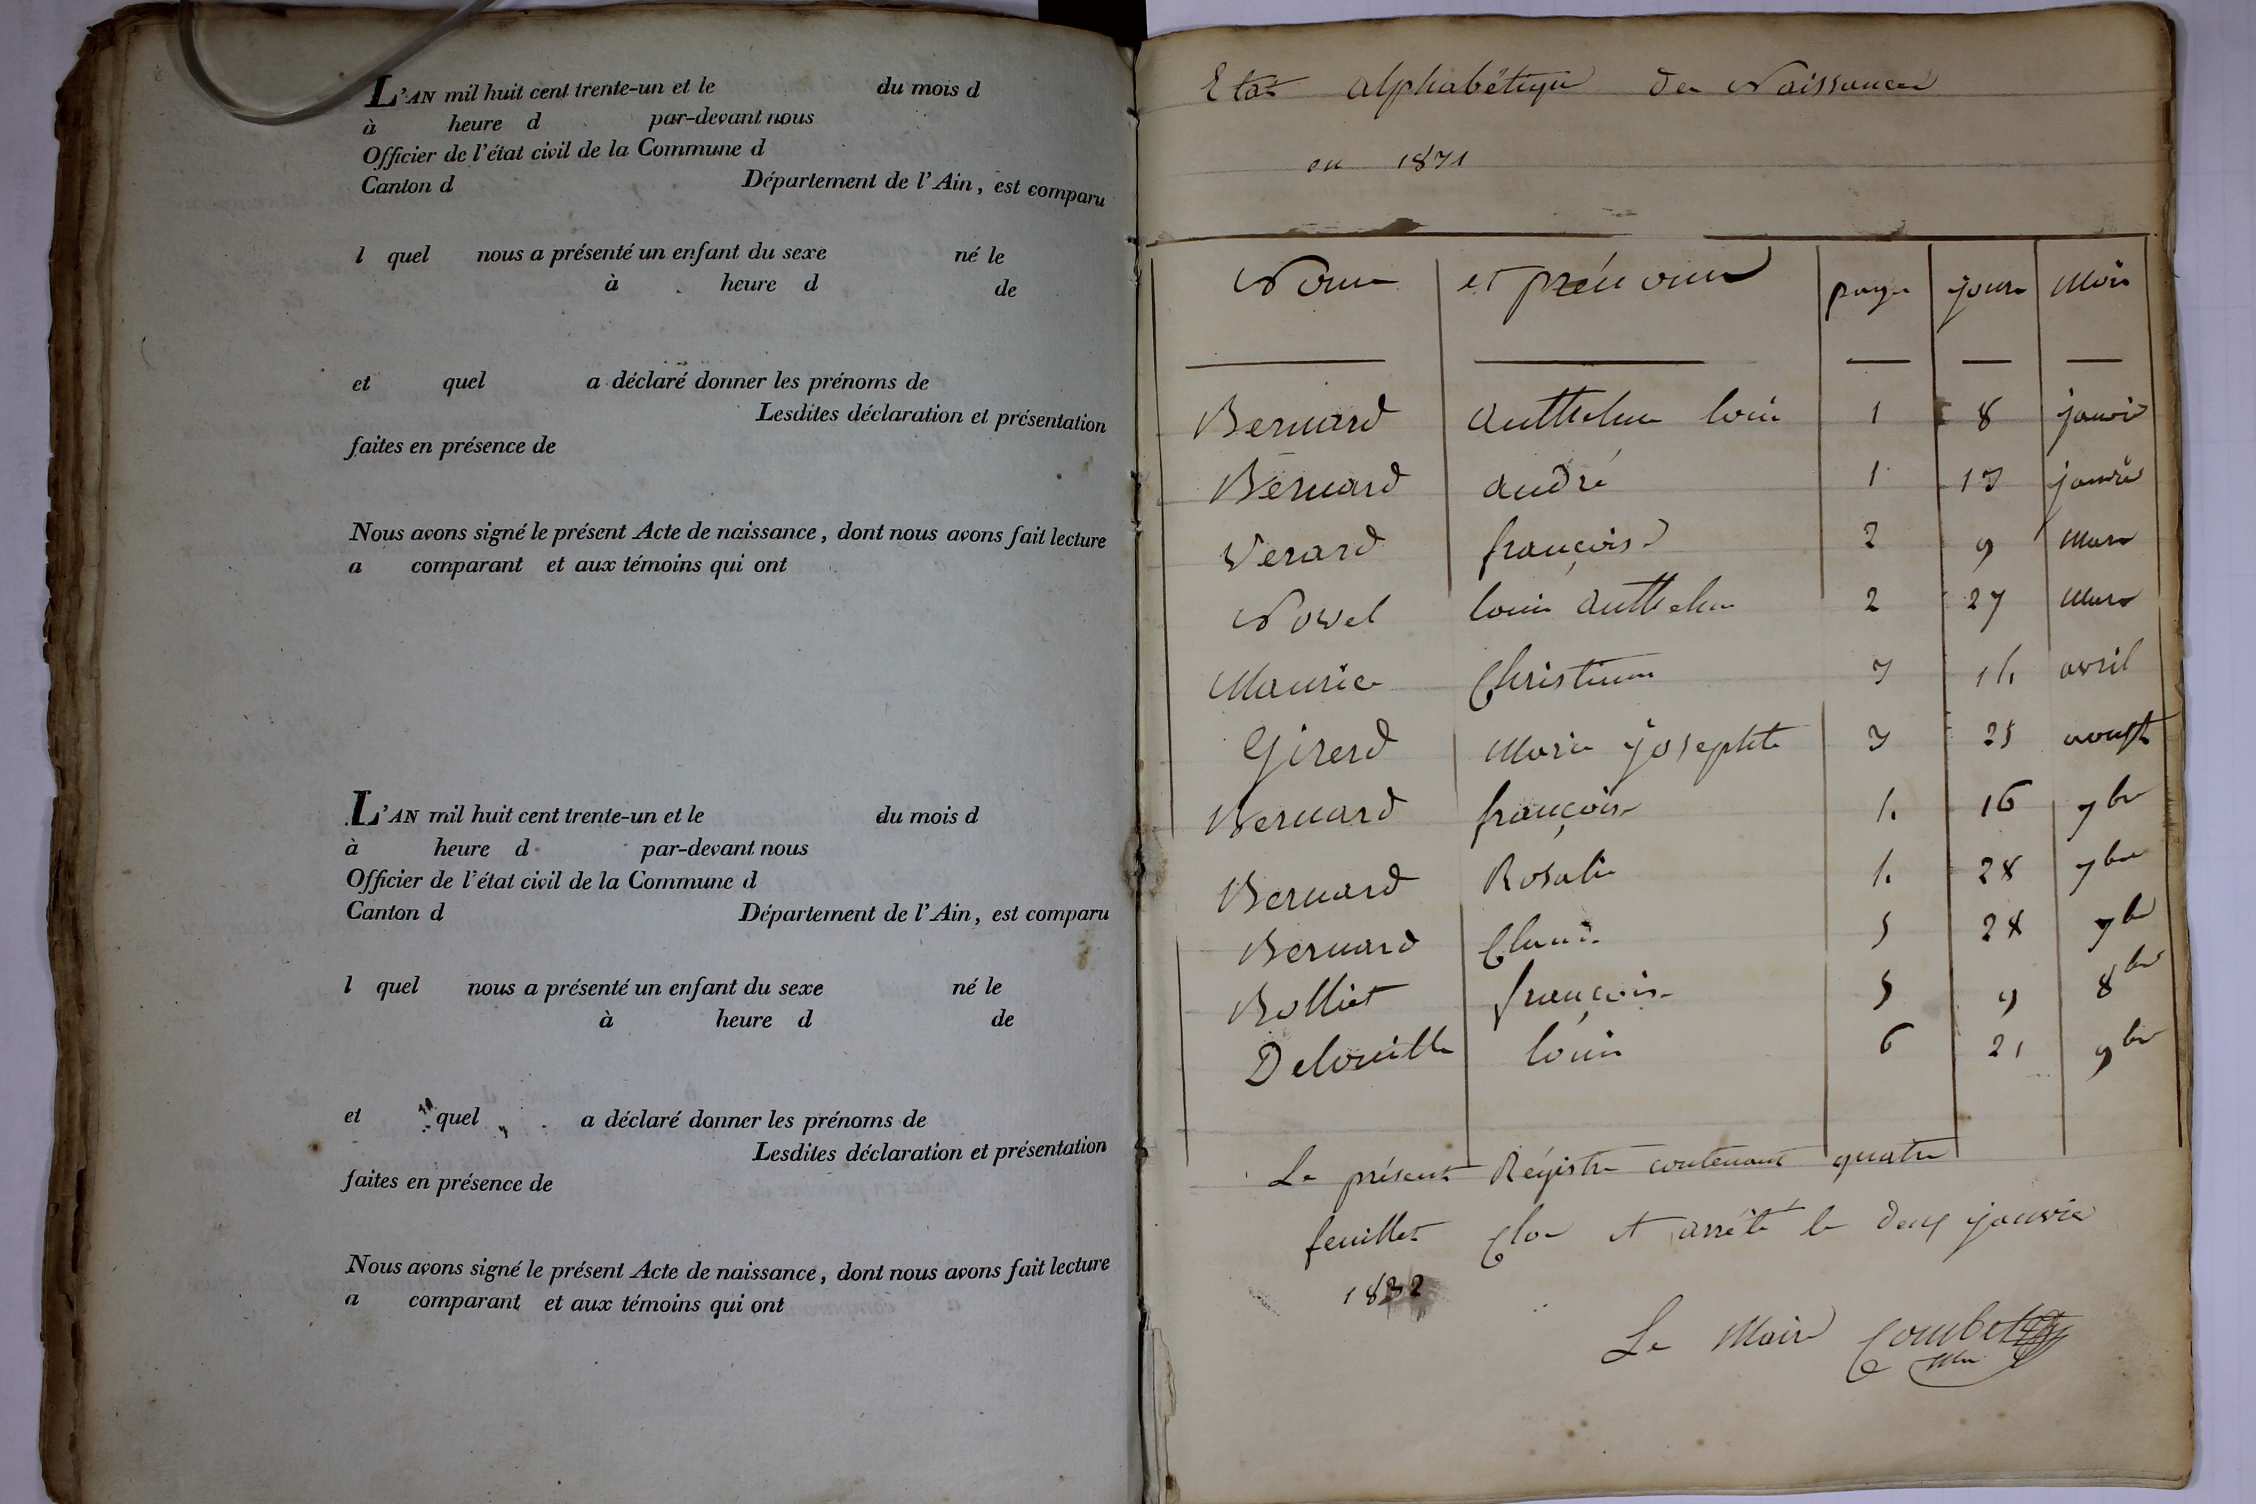 L'AN mil huit cent trente-un et le du mois d
à heure d par-devant nous
Officier de l'état civil de la Commune d
Canton d Département de l'Ain, est comparu
l quel nous a présenté un enfant du sexe né le
à heure d de
et quel a déclaré donner les prénoms de
Lesdites déclaration et présentation
faites en présence de
Nous avons signé le présent Acte de naissance, dont nous avons fait lecture
a comparant et aux témoins qui ont
L'AN mil huit cent trente-un et le du mois d
à heure d par-devant nous
Officier de l'état civil de la Commune d
Canton d Département de l'Ain, est comparu
l quel nous a présenté un enfant du sexe né le
à heure d de
et quel a déclaré donner les prénoms de
Lesdites déclaration et présentation
faites en présence de
Nous avons signé le présent Acte de naissance, dont nous avons fait lecture
a comparant et aux témoins qui ont
Etat alphabétique des Naissances
en 1831
Noms et prénoms pages jours Mois
Bernard Anthelme louis 1 8 janvier
Bernard andré 1 13 janvier
Verard françois 2 9 Mars
Novel louis Anthelme 2 27 Mars
Maurice Christine 3 14 avril
Girerd Marie josephte 3 25 aoust
Bernard françoise 4 16 7bre
Bernard Rosalie 4 28 7bre
Bernard 5 28 7bre
Bolliet françoise 5 9 8bre
Delouille louis 6 21 9bre
Le présent Régistre contenant quatre
feuillets Clos et arrêté le deux janvier
1832
Le Maire Combet